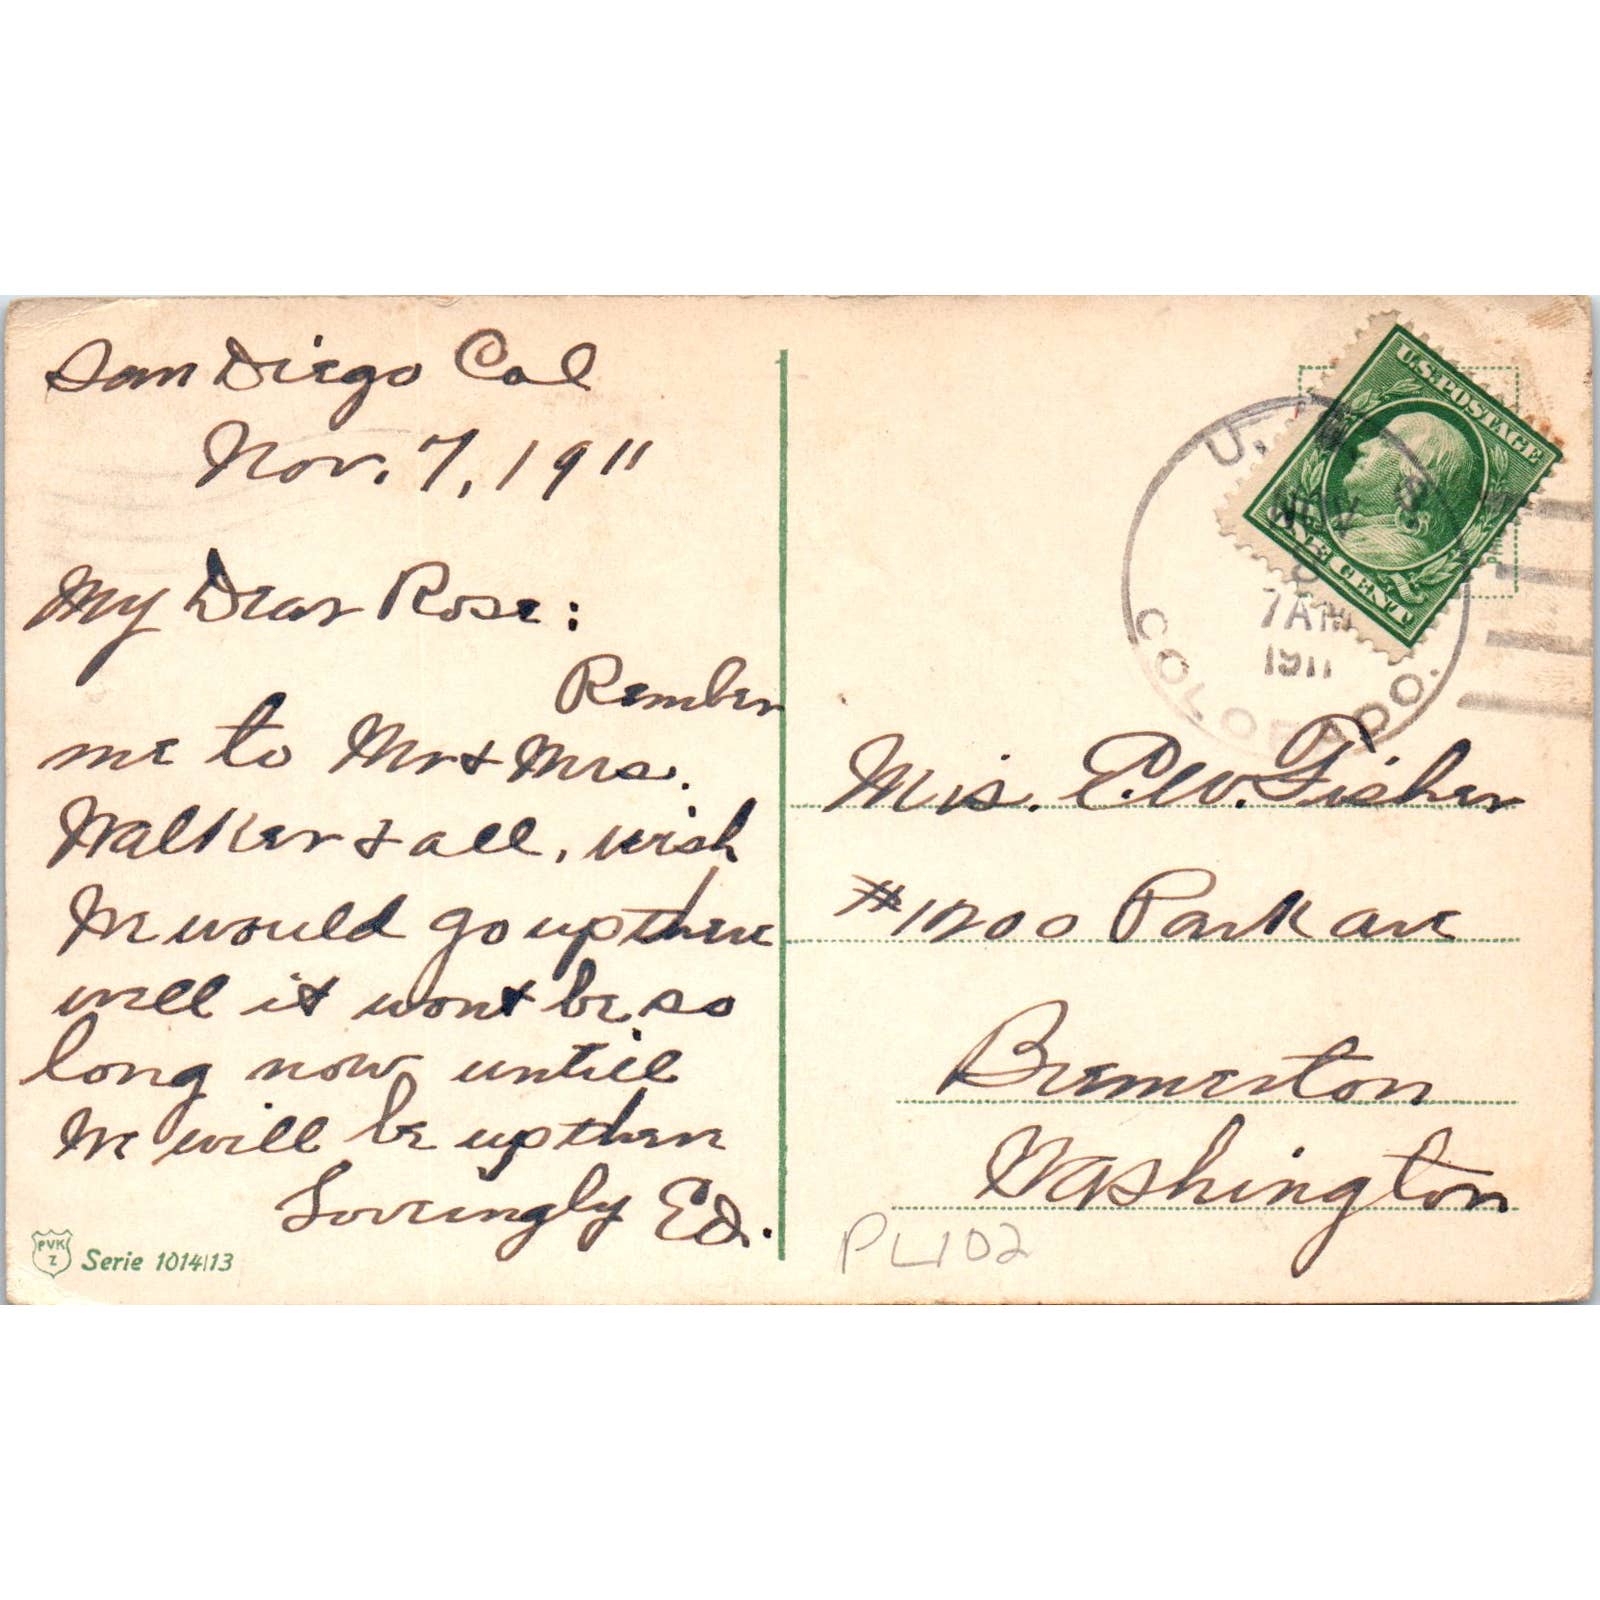 San Diego Cal
Nov. 7, 1911
My Dear Rose:
Rember
me to Mr & Mrs.
Walker & all, wish
We would go up there
well it wont be so
long now untill
We will be up there
Loveingly Ed.
PVK
Z
Serie 1014/13
U.S. POSTAGE
ONE CENT
U. S. S.
NOV
7 AM
1911
COLORADO.
Mrs. E. W. Fisher
#1200 Park ave
Bremerton
Washington
PL102